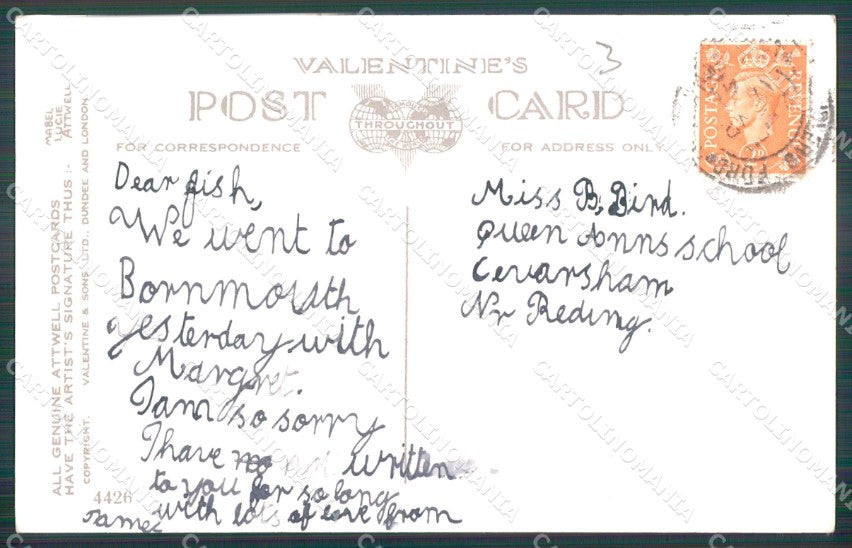 VALENTINE'S
POST CARD
FAMOUS THROUGHOUT THE WORLD
FOR CORRESPONDENCE
FOR ADDRESS ONLY
3
POSTAGE
REVENUE
ALL GENUINE ATTWELL POSTCARDS
HAVE THE ARTIST'S SIGNATURE THUS :-
MABEL
LUCIE
ATTWELL
COPYRIGHT. VALENTINE & SONS LTD., DUNDEE AND LONDON.
4426
Dear fish,
We went to
Bornmouth
yesterday with
Margret.
I am so sorry
I have written
to you for so long
with lots of love from
James
Miss B. Bird.
Queen Anns school
Cevarsham
Nr Reding.
CARTOLINOMANIA